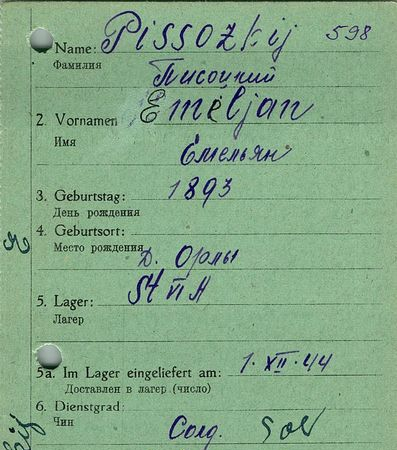 Name: Pissozkij 598
Фамилия Писоцкий
2. Vornamen Emeljan
Имя
Емельян
3. Geburtstag: 1893
День рождения
4. Geburtsort:
Место рождения Д. Орлы
5. Lager: St VI A
Лагер
5a. Im Lager eingeliefert am: 1. XII. 44
Доставлен в лагер (число)
6. Dienstgrad:
Чин Солд. Sol